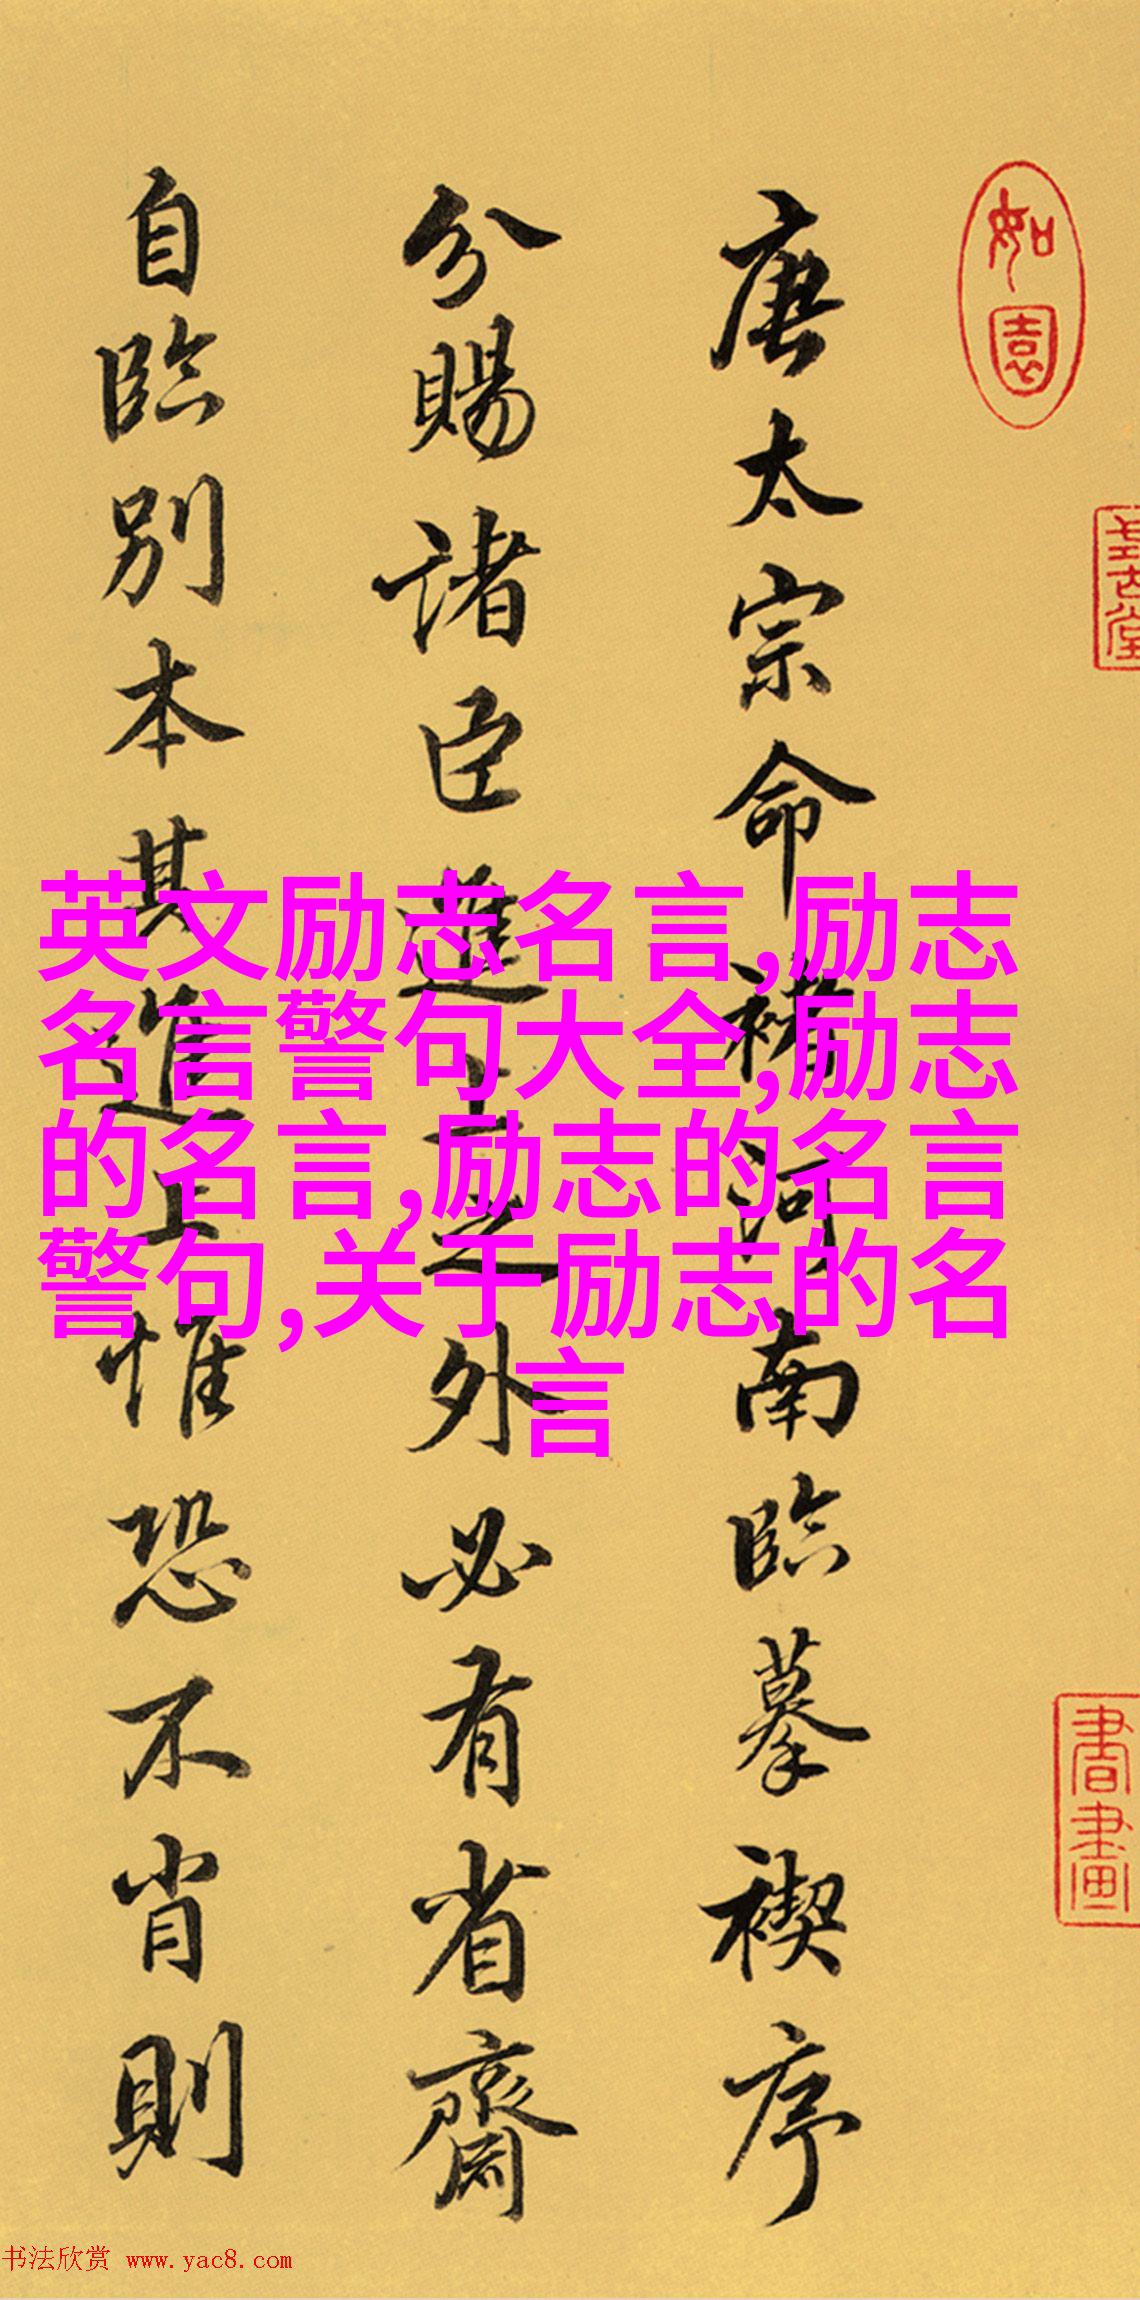 唐太宗命褚河南臨摹禊序
分賜諸臣進上之外必有省齋
自臨別本其進上惟恐不肖則
如園
書畫
英文励志名言,励志
名言警句大全,励志
的名言,励志的名言
警句,关于励志的名
言
书法欣赏 www.yac8.com